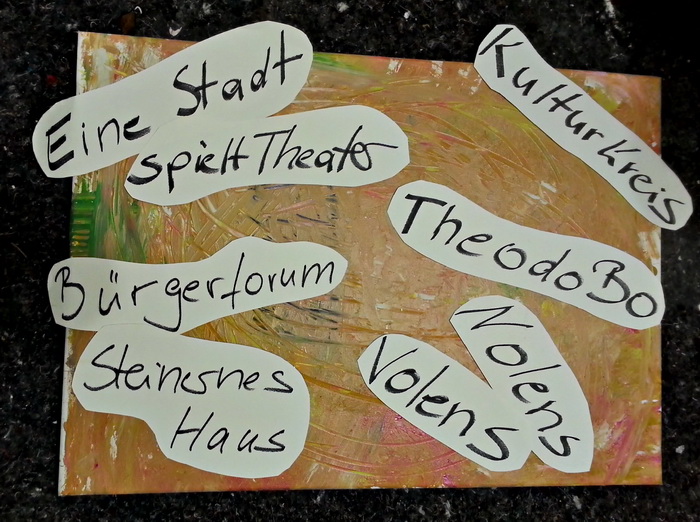 Eine Stadt
spielt Theater
KulturKreis
TheodoBo
Bürgerforum
Steinernes
Haus
Nolens
Volens